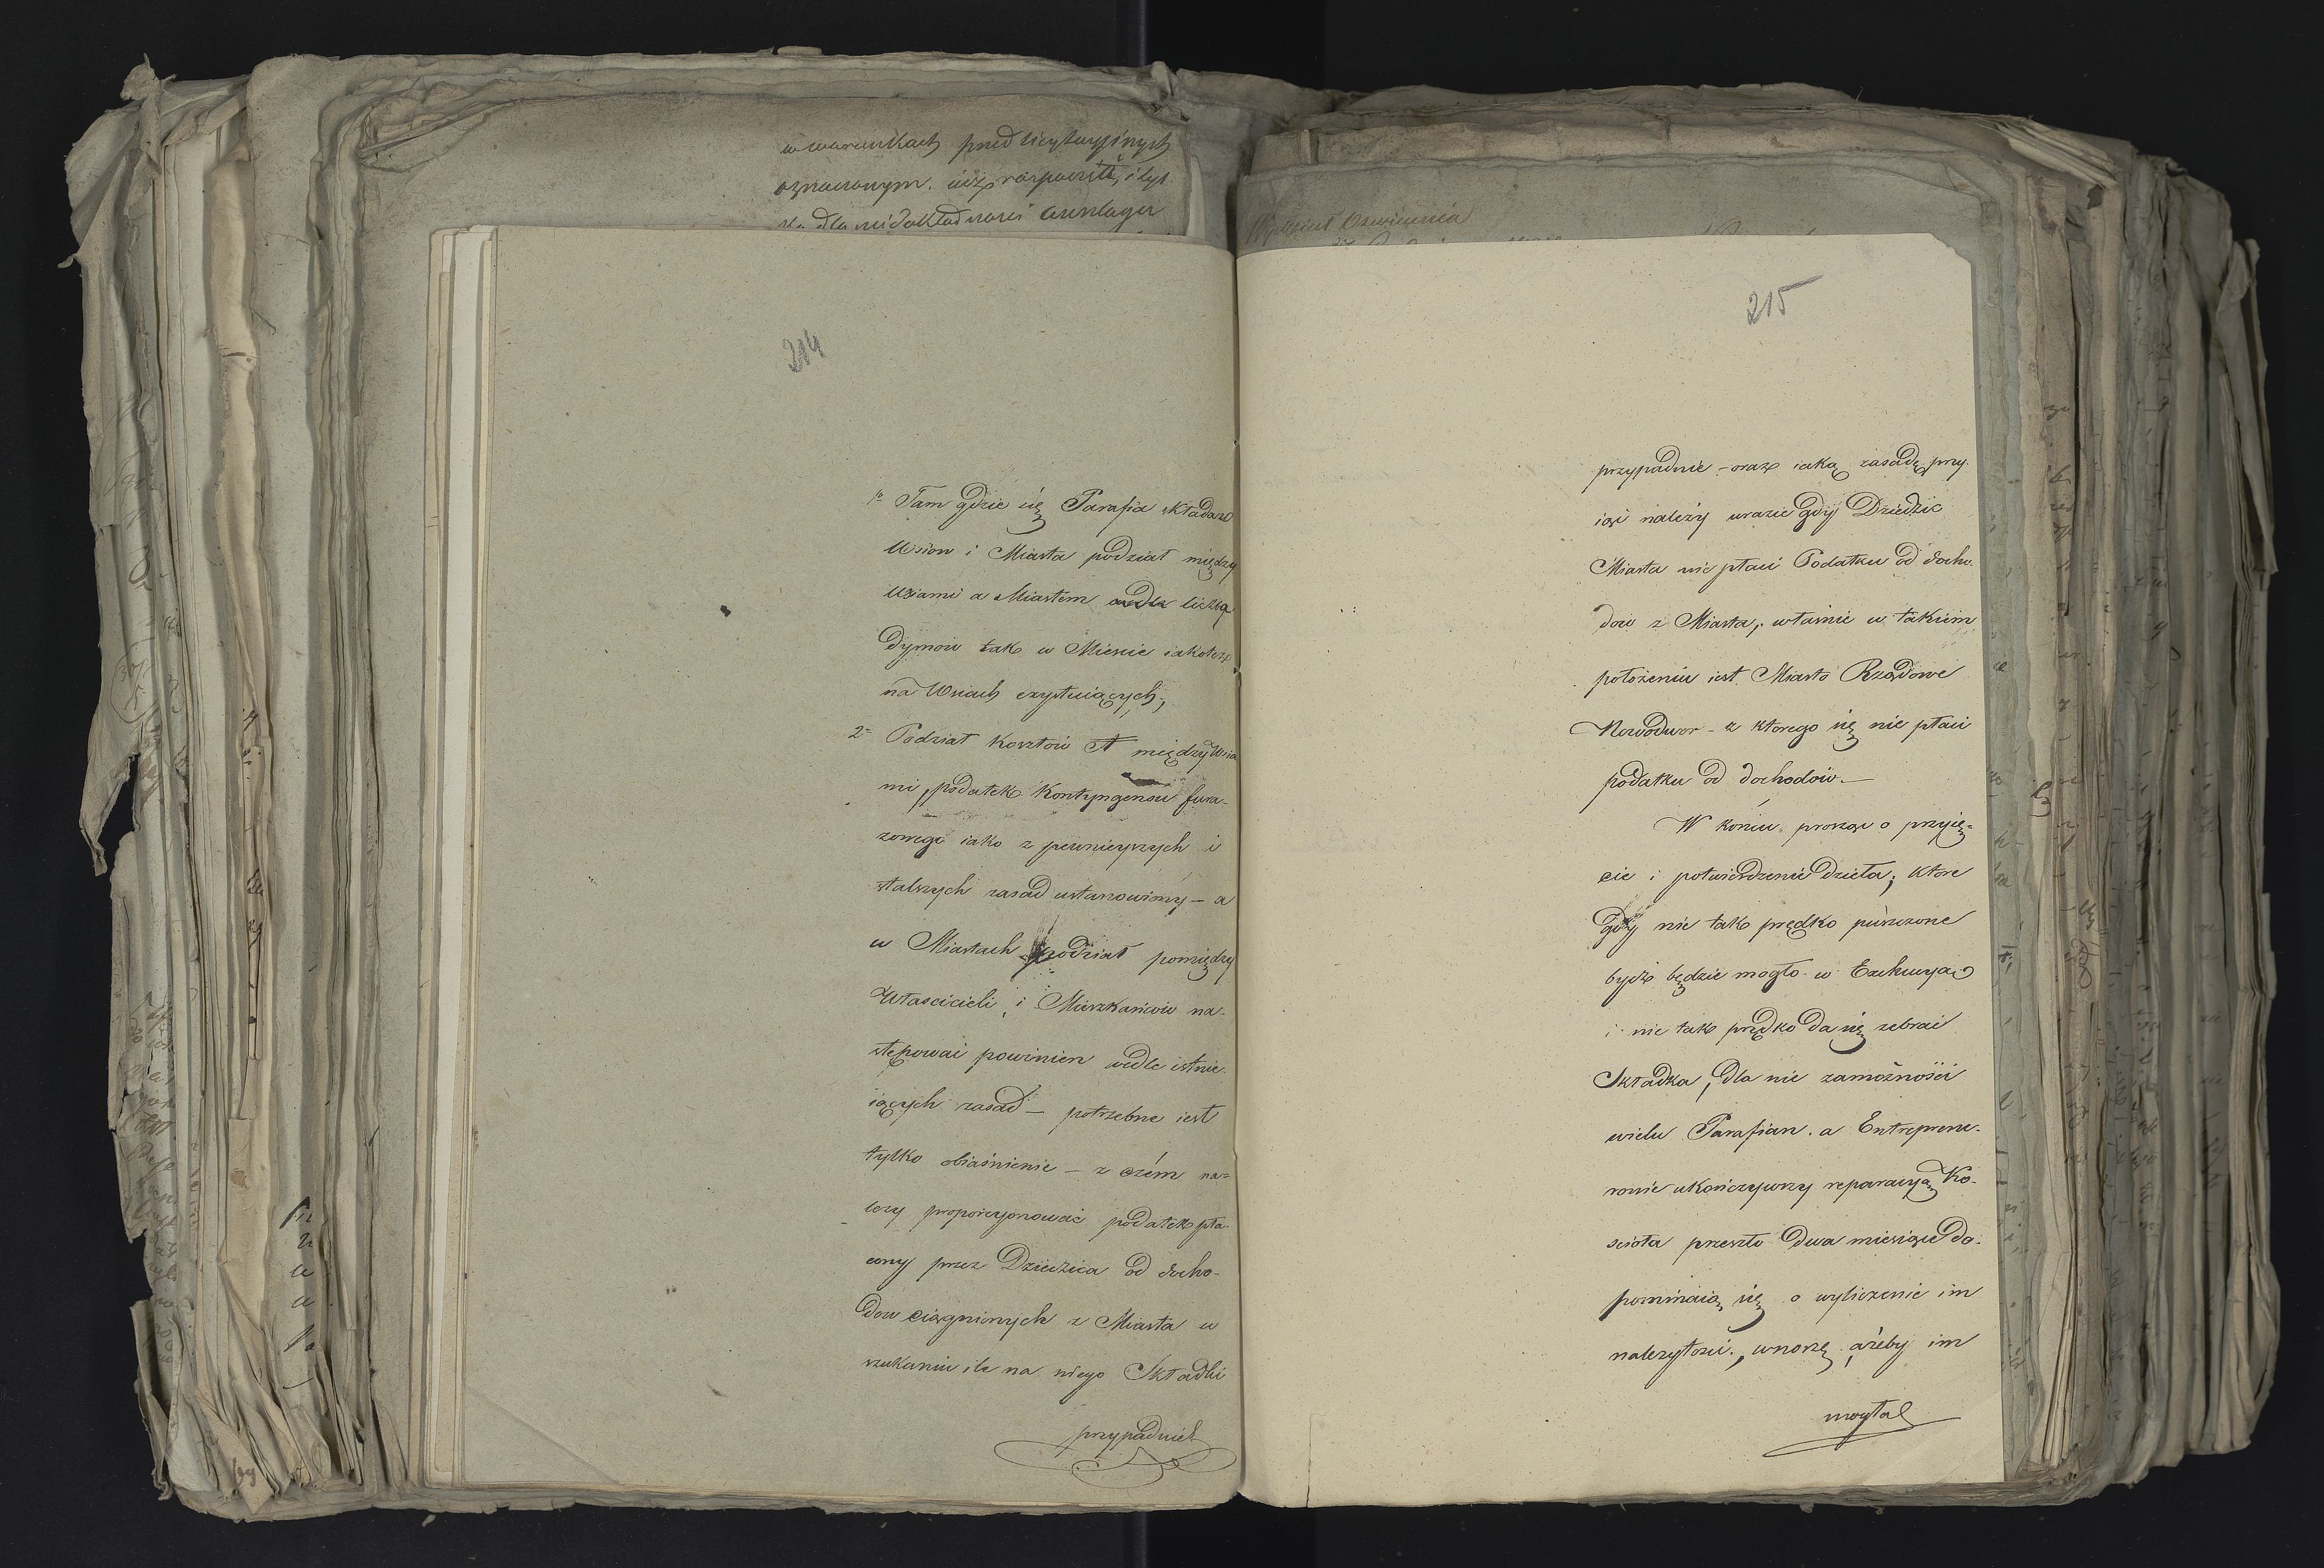 w warunkach przed licytacyjnych
oznaczonym, iuż rozpoczął, i tyl
ko dla niedokładności
Wydział Oswiecenia
214
1o Tam gdzie się Parafia składa z
Wsiow i Miasta podział między
Wsiami a Miastem wedle liczby
Dymow tak w Mieście iakoteż
na Wsiach exystuiących,
2o Podział kosztów między Wsia
mi, podatek Kontyngensu fura-
żowego iako z pewnieyszych i
stalszych zasad ustanowiony – a
w Miastach podział pomiędzy
Właścicieli i Mieszkańców na-
stępować powinien wedle istnie-
iących zasad – potrzebne iest
tylko obiaśnienie – z czém na=
leży proporcyonować podatek pła-
cony przez Dziedzica od docho-
dow ciągnionych z Miasta w
szukaniu ile na niego Składki
przypadnie
215
przypadnie – oraz iaką zasadę przy-
iąć należy w razie gdy Dziedzic
Miasta nie płaci Podatku od docho-
dow z Miasta, własnie w takiem
położeniu iest Miasto Rządowe
Nowodwor – z ktorego się nie płaci
podatku od dochodów. –
W końcu proszę o przyię=
cie i potwierdzenie dzieła, ktore
gdy nie tak prędko puszczone
bydź będzie mogło w Exekucyą
i nie tak prędko da się zebrać
Składka, dla nie zamożności
wielu Parafian. a Entreprene-
rowie ukończywszy reparacyą Ko-
scioła przeszło dwa miesiące do-
pominaią się o wyliczenie im
należytości, wnoszę ażeby im
mogła